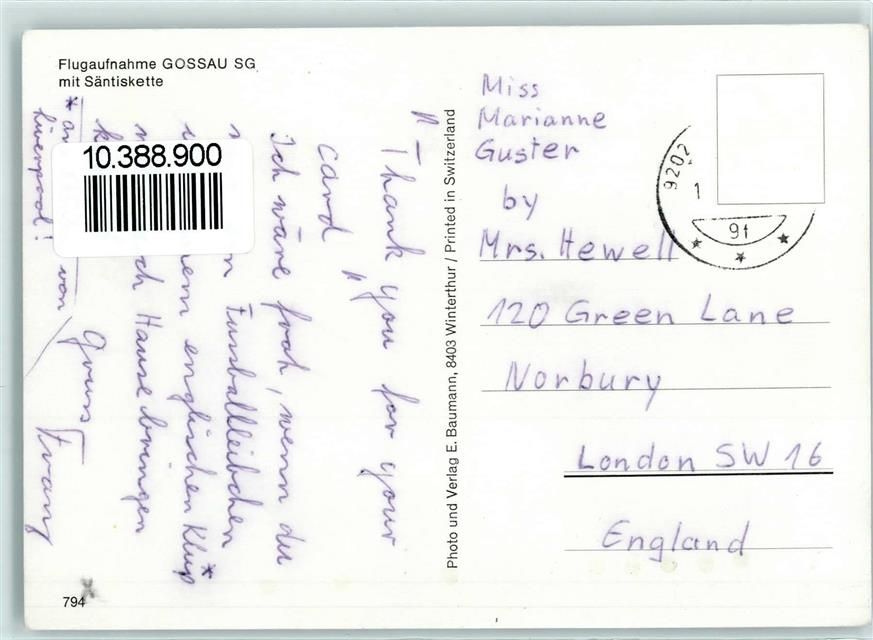 Flugaufnahme GOSSAU SG
mit Säntiskette
10.388.900
" Thank you for your
card "
Ich wäre froh, wenn du
Fussballleibchen
englischen Klup*
Hause bringen
Gruss Franz
* von
Liverpool!
794
Photo und Verlag E. Baumann, 8403 Winterthur / Printed in Switzerland
Miss
Marianne
Guster
by
Mrs. Hewell
120 Green Lane
Norbury
London SW 16
England
9202
1
91